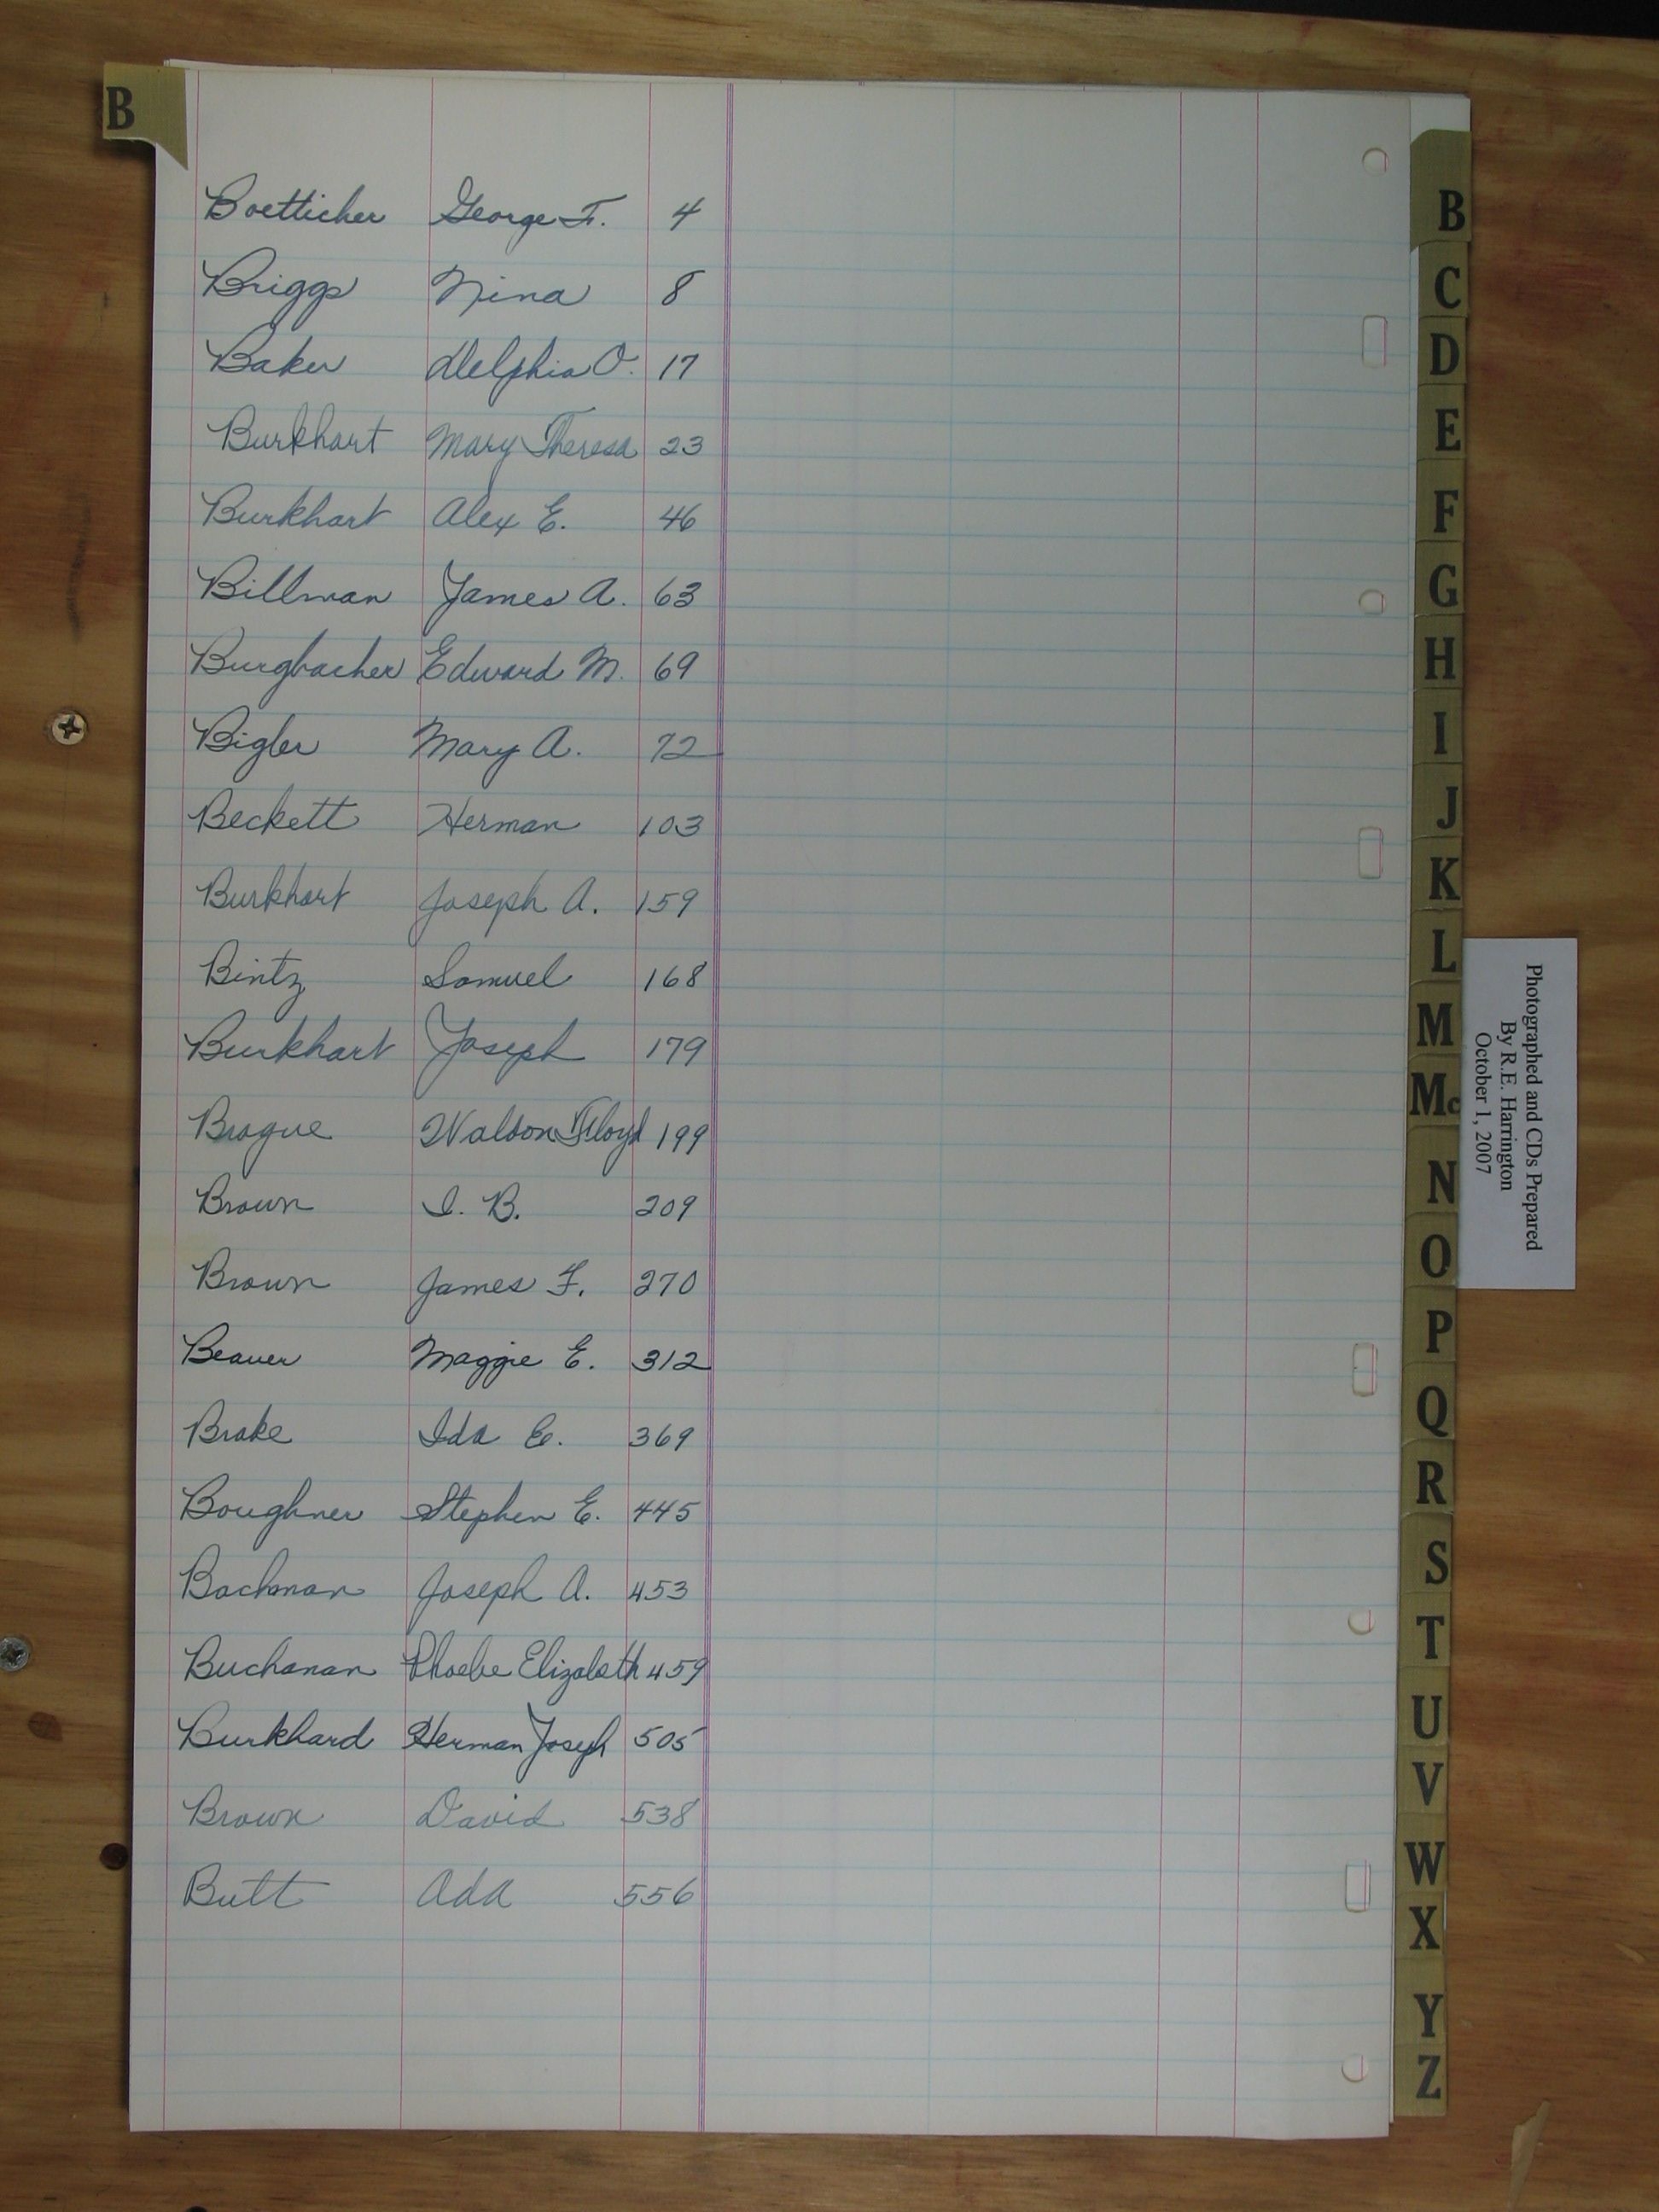 B
Boetticher George F. 4
Briggs Nina 8
Baker Delphia O. 17
Burkhart Mary Theresa 23
Burkhart Alex E. 46
Billman James A. 63
Burgbacher Edward M. 69
Bigler Mary A. 72
Beckett Herman 103
Burkhart Joseph A. 159
Bintz Samuel 168
Burkhart Joseph 179
Brogue Floyd 199
Brown I. B. 209
Brown James F. 270
Beaver Maggie E. 312
Brake Ida E. 369
Boughner Stephen E. 445
Bachman Joseph A. 453
Buchanan Phoebe Elizabeth 459
Burkhard Herman Joseph 505
Brown David 538
Butt Ada 556
B
C
D
E
F
G
H
I
J
K
L
M
Mc
N
O
P
Q
R
S
T
U
V
W
X
Y
Z
Photographed and CDs Prepared
By R.E. Harrington
October 1, 2007